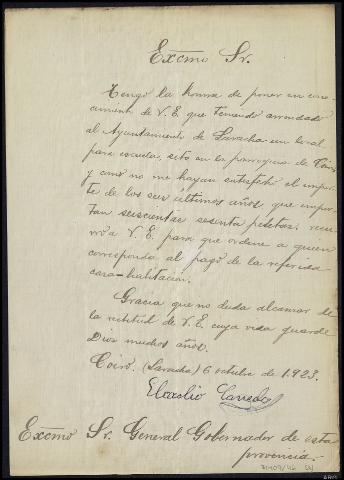 Excmo Sr.
Tengo la honra de poner en cono-
cimiento de V. E. que teniendo arrendado
al Ayuntamiento de Laracha un local
para escuela, sito en la parroquia de Coiro,
y como no me hayan satisfecho el impor-
te de los seis últimos años que impor-
tan seiscientas sesenta pesetas, recu-
rro a V. E. para que ordene a quien
corresponda al pago de la referida
casa-habitación.
Gracia que no duda alcanzar de
la rectitud de V. E. cuya vida guarde
Dios muchos años.
Coiro. (Laracha) 6 octubre de 1.923.
Excmo Sr. General Gobernador de esta
provincia.-